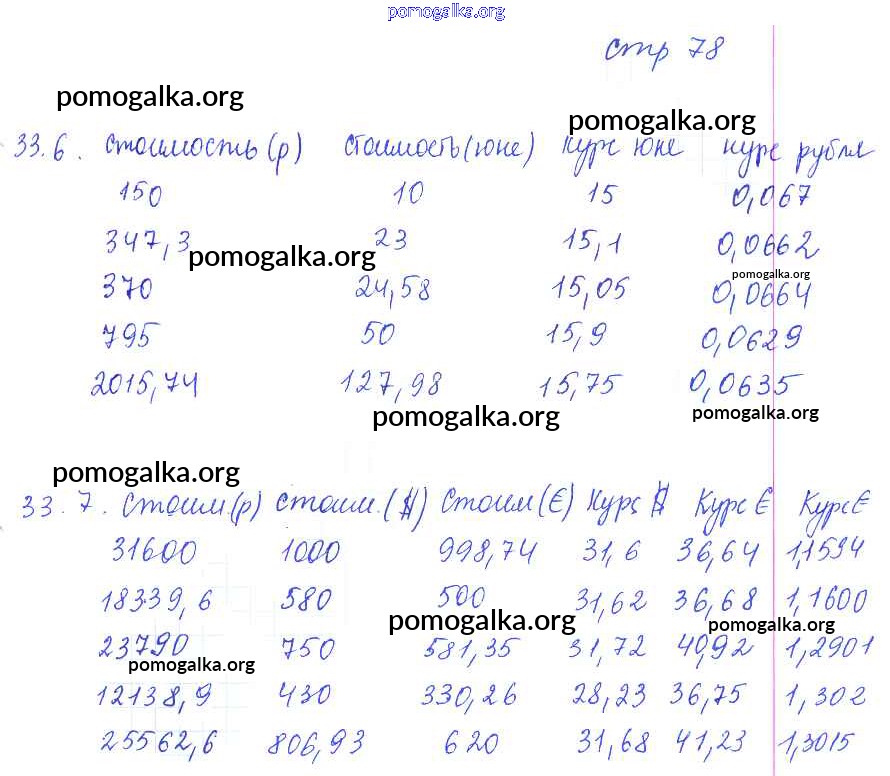 pomogalka.org
стр 78
pomogalka.org
pomogalka.org
33.6. стоимость (р) стоимость (юне) курс юне курс рубля
150 10 15 0,067
347,3 23 15,1 0,0662
pomogalka.org
pomogalka.org
370 24,58 15,05 0,0664
795 50 15,9 0,0629
2015,74 127,98 15,75 0,0635
pomogalka.org
pomogalka.org
pomogalka.org
33.7. Стоим.(р) стоим.($) Стоим(€) Курс $ Курс € Курс €
31600 1000 998,74 31,6 36,64 1,1594
18339,6 580 500 31,62 36,68 1,1600
pomogalka.org
pomogalka.org
23790 750 581,35 31,72 40,92 1,2901
pomogalka.org
12138,9 430 330,26 28,23 36,75 1,302
25562,6 806,93 620 31,68 41,23 1,3015